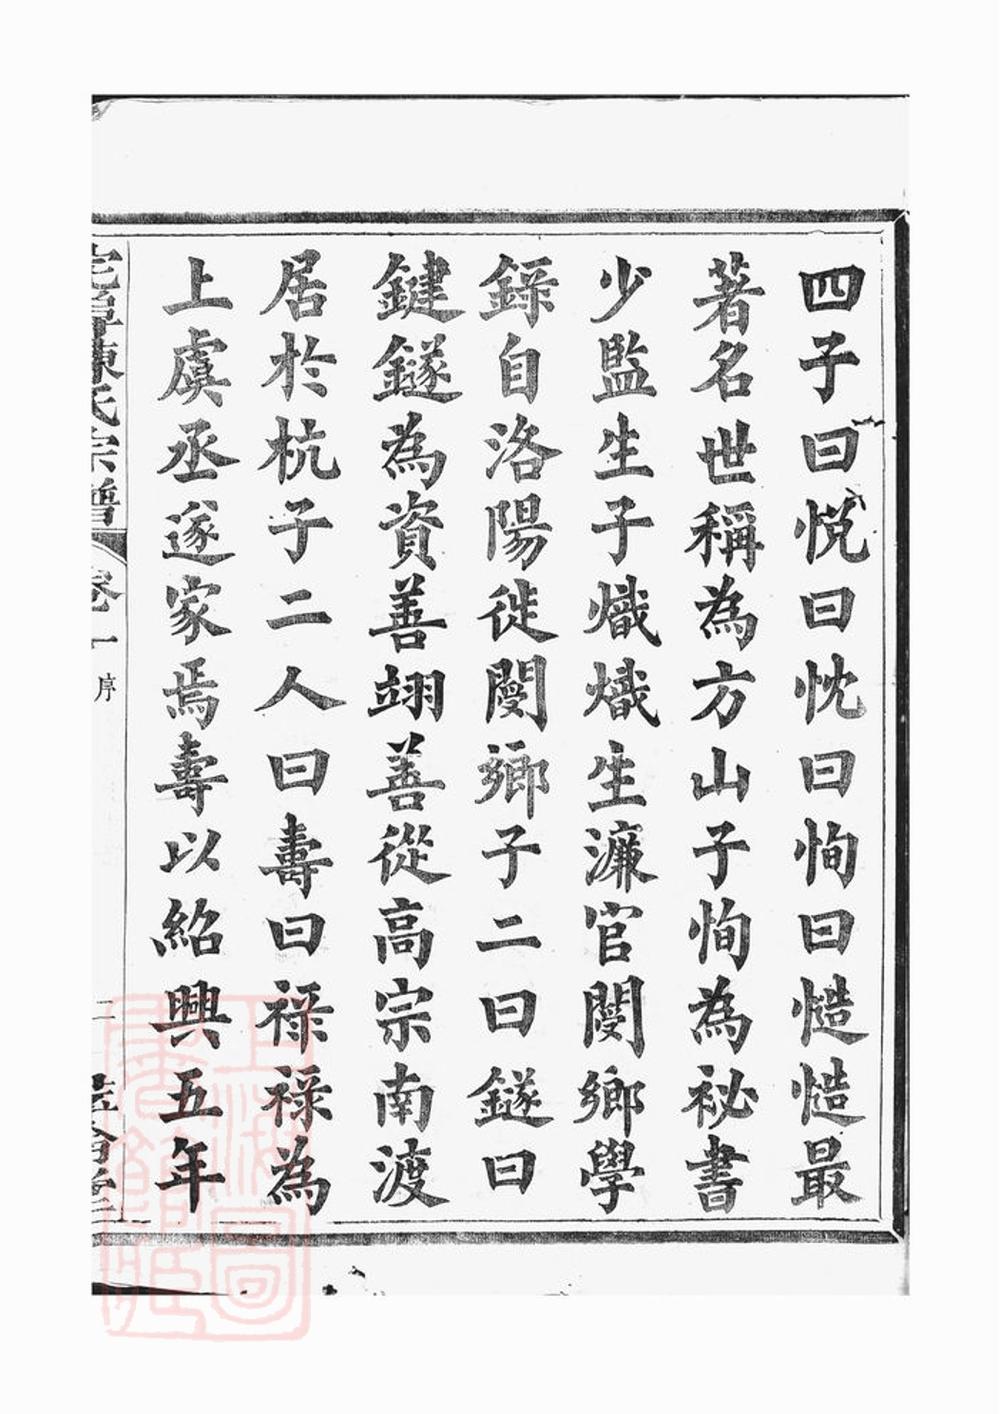 四子曰悅曰忱曰恂曰慥慥最
著名世稱為方山子恂為祕書
少監生子熾熾生濂官閿鄉學
錄自洛陽徙閿鄉子二曰鐩曰
鍵鐩為資善翊善從高宗南渡
居於杭子二人曰壽曰祿祿為
上虞丞遂家焉壽以紹興五年
陳氏宗譜
卷一
序
二